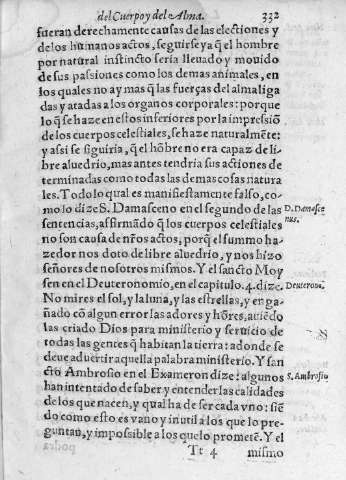 del Cuerpo y del Alma. 332
fueran derechamente causas de las electiones y
de los humanos actos, seguirse ya q̃ el hombre
por natural instincto seria lleuado y mouido
de sus passiones como los demas animales, en
los quales no ay mas q̃ las fuerças del alma liga
das y atadas a los organos corporales: porque
lo q̃ se haze en estos inferiores por la impressiõ
de los cuerpos celestiales, se haze naturalmẽte:
y assi se siguiria, que el hõbre no era capaz de li-
bre aluedrio, mas antes tendria sus actiones de
terminadas como todas las demas cosas natura
les. Todo lo qual es manifiestamente falso, co-
mo lo dize S. Damasceno en el segundo de las
D. Damasce
nus.
sentencias, affirmãdo q̃ los cuerpos celestiales
no son causa de nr̃os actos, porq̃ el summo ha-
zedor nos doto de libre aluedrio, y nos hizo
señores de nosotros mismos. Y el sancto Moy
sen en el Deuteronomio, en el capitulo. 4. dize.
Deuterono.
No mires el sol, y la luna, y las estrellas, y enga-
ñado cõ algun error las adores y hõres, auiẽdo
las criado Dios para ministerio y seruicio de
todas las gentes q̃ habitan la tierra: adonde se
deue aduertir aquella palabra ministerio. Y san
cto Ambrosio en el Exameron dize: algunos
S. Ambrosio
han intentado de saber y entender las calidades
de los que nacen, y qual ha de ser cada vno: siẽ
do como esto es vano y inutil a los que lo pre-
guntan, y impossible a los que lo prometẽ. Y el
Tt 4 mismo